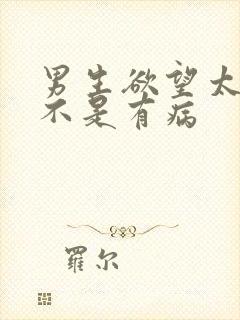 男生欲望太
不是有病
羅尔